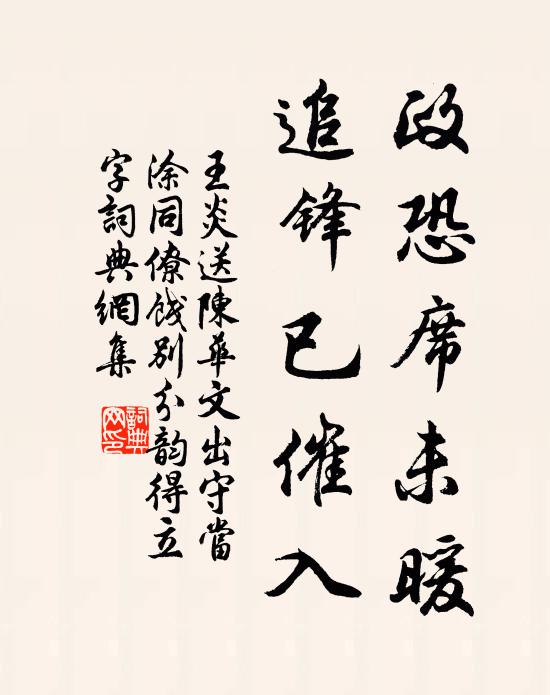 政恐席未暖
追鋒已催入
王炎送陳華文出守當
涂同僚餞別分韵得立
字詞典網集
詞典网印